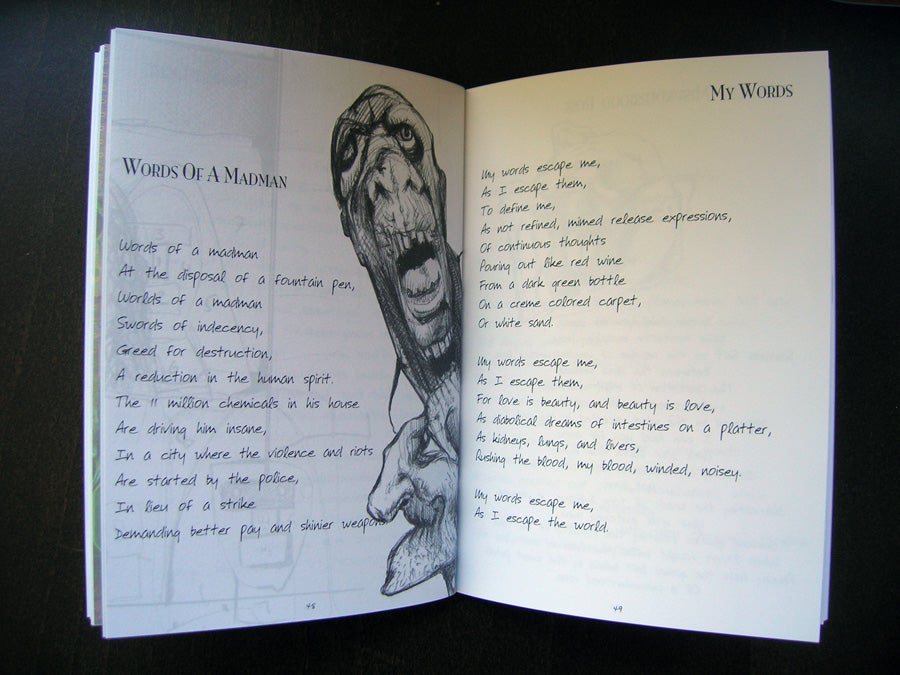 Words Of A Madman
Words of a madman
At the disposal of a fountain pen,
Worlds of a madman
Swords of indecency,
Greed for destruction,
A reduction in the human spirit.
The 11 million chemicals in his house
Are driving him insane,
In a city where the violence and riots
Are started by the police,
In lieu of a strike
Demanding better pay and shinier weapons.
48
My Words
My words escape me,
As I escape them,
To define me,
As not refined, mimed release expressions,
Of continuous thoughts
Pouring out like red wine
From a dark green bottle
On a creme colored carpet,
Or white sand.
My words escape me,
As I escape them,
For love is beauty, and beauty is love,
As diabolical dreams of intestines on a platter,
As kidneys, lungs, and livers,
Rushing the blood, my blood, winded, noisey.
My words escape me,
As I escape the world.
49